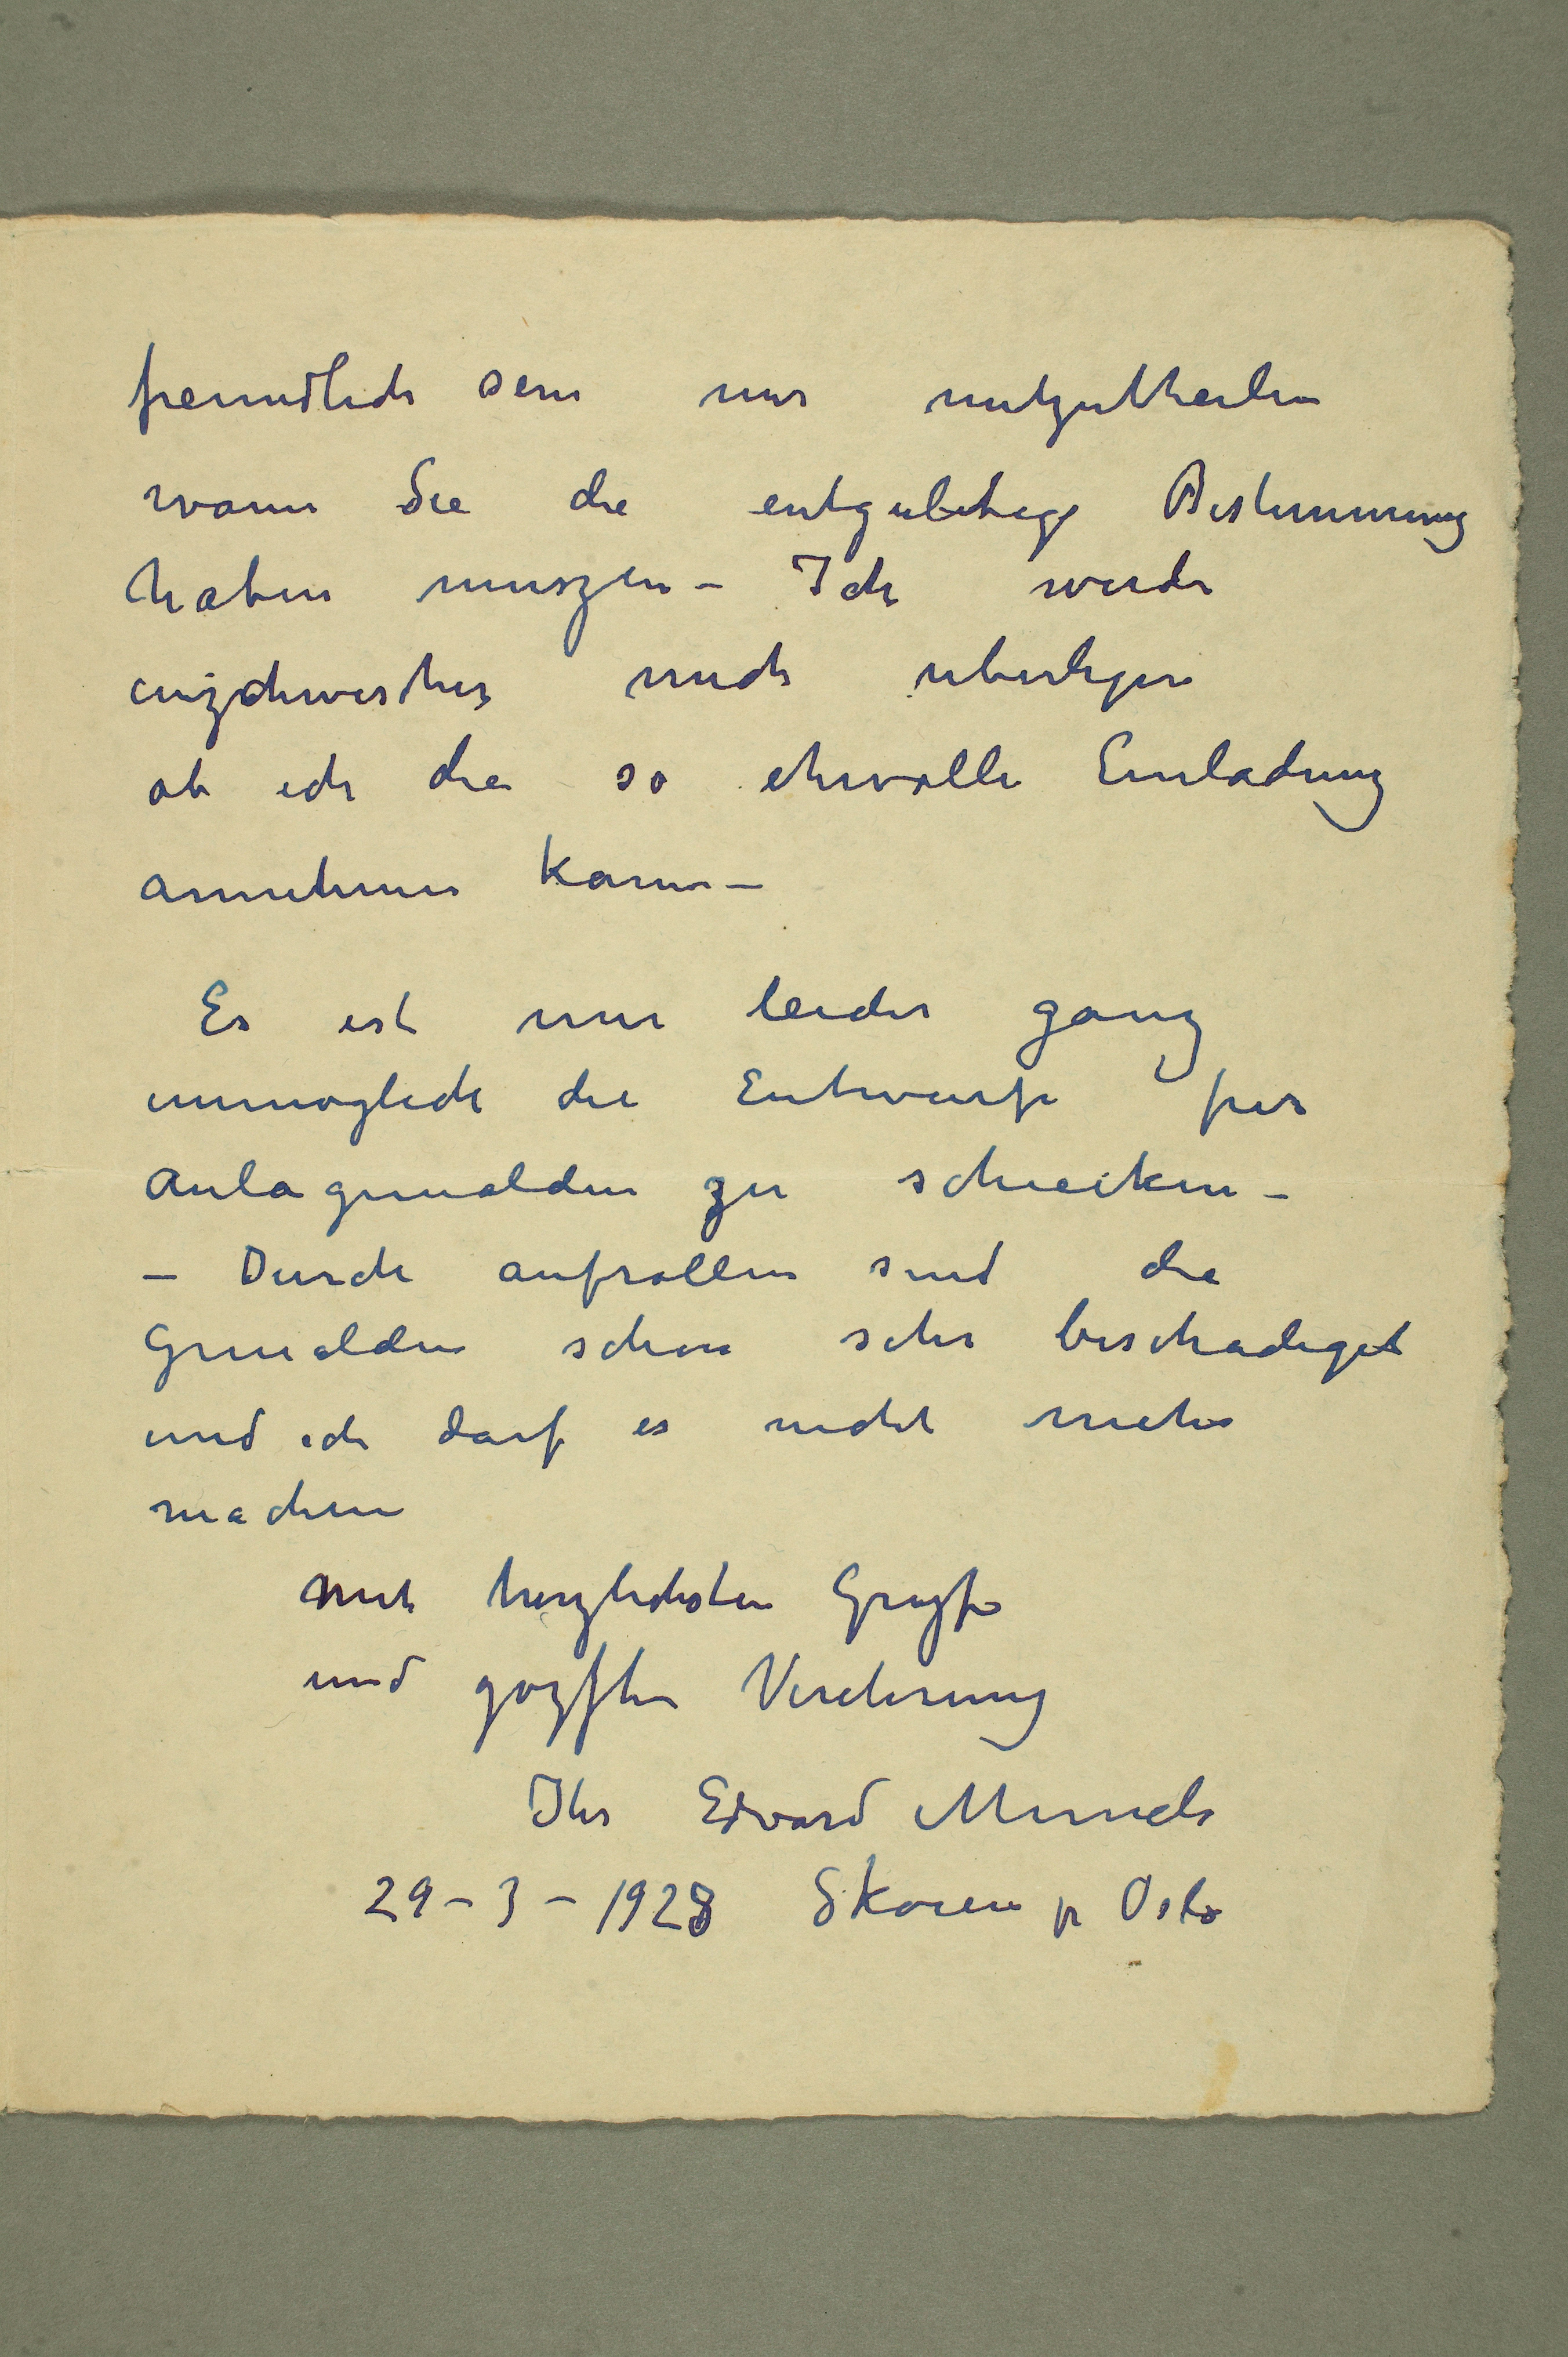 freundlich sein mir mitzutheilen
wann Sie die entgultige Bestimmung
haben muszen – Ich werde
inzchwischen mich uberlegen
ob ich die so ehrvolle Einladung
annehmen kann –
Es ist mir leider ganz
unmöglich die Entwurfe fur
Aulagemälden zu schicken –
– Durch aufrollen sind die
Gemälden schon sehr beschadiget
und ich darf es nicht mehr
machen
mit herzlichsten
und Verehrung
Ihr Edvard Munch
29 – 3 – 1928 Skøien pr Oslo